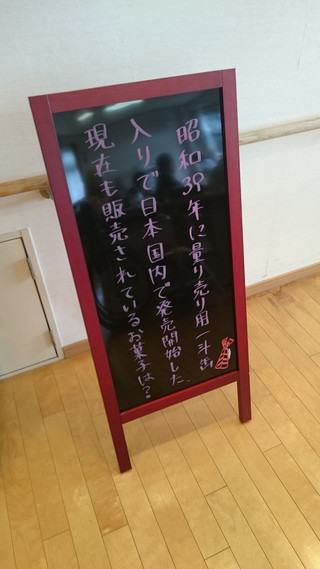 昭和39年に量り売り用一斗缶
入りで日本国内で発売開始した、
現在も販売されているお菓子は?